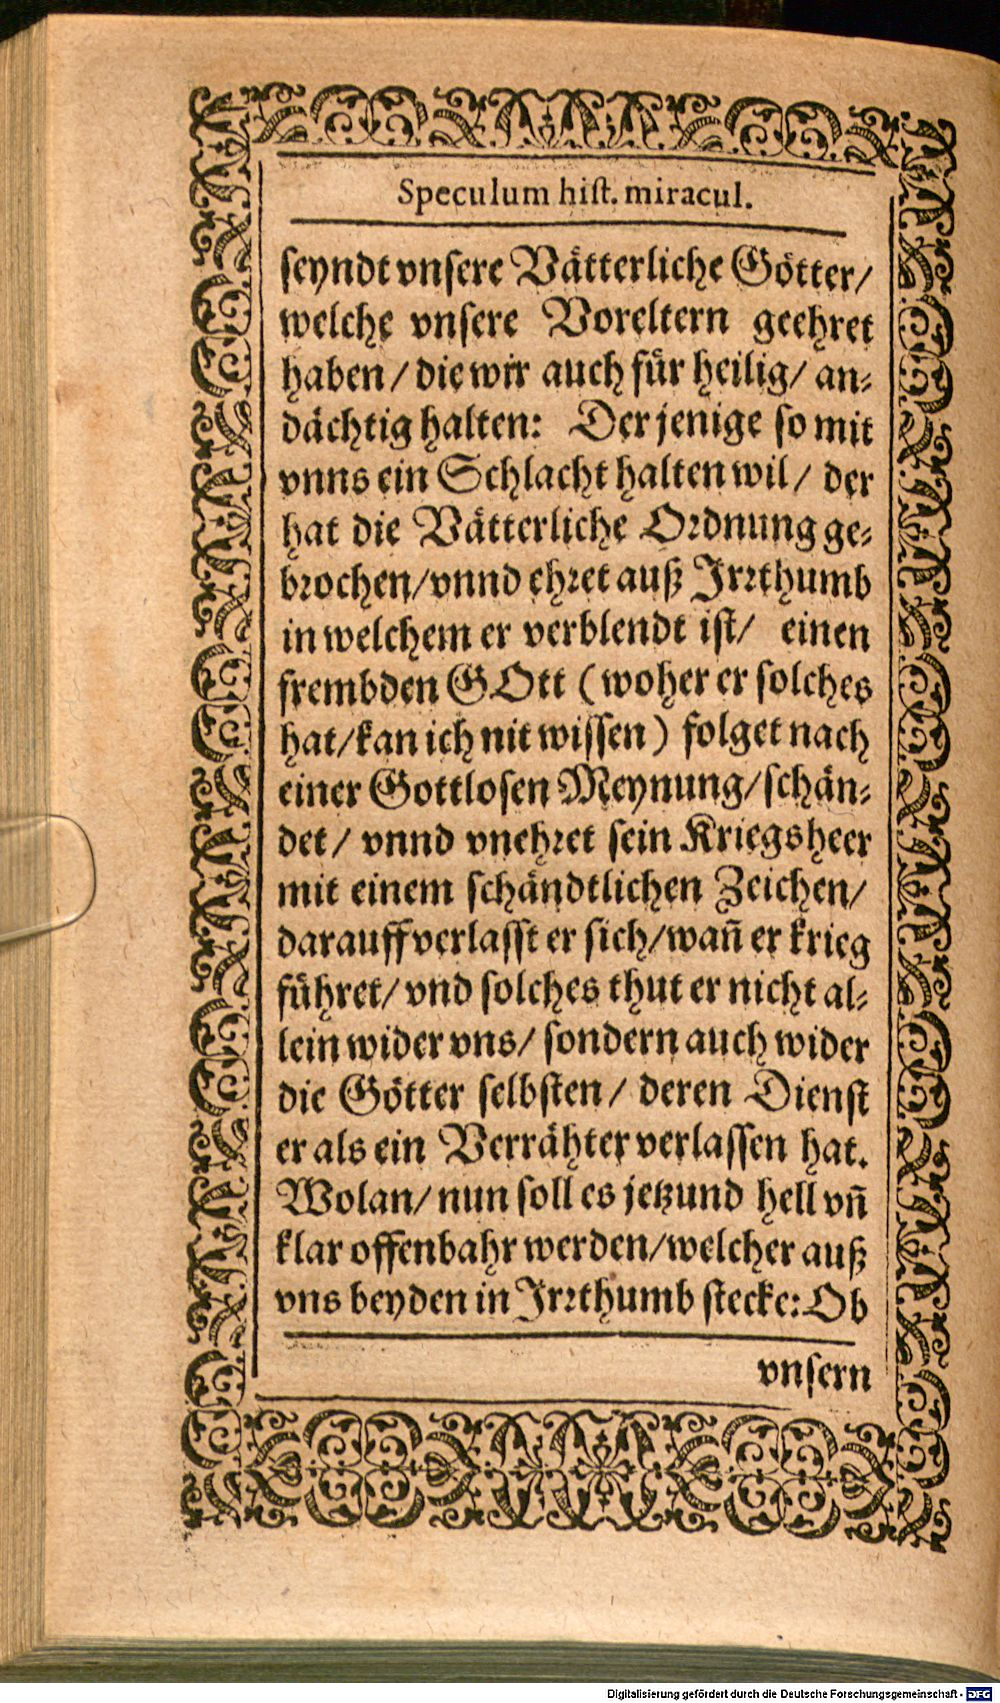 Speculum hist. miracul.
seyndt vnsere Vätterliche Götter/
welche vnsere Voreltern geehret
haben/ die wir auch für heilig/ an⸗
dächtig halten: Der jenige so mit
vnns ein Schlacht halten wil/ der
hat die Vätterliche Ordnung ge⸗
brochen/ vnnd ehret auß Irrthumb
in welchem er verblendt ist/ einen
frembden GOtt (woher er solches
hat/ kan ich nit wissen) folget nach
einer Gottlosen Meynung/ schän⸗
det/ vnnd vnehret sein Kriegsheer
mit einem schändtlichen Zeichen/
darauff verlasst er sich/ wañ er krieg
führet/ vnd solches thut er nicht al⸗
lein wider vns/ sondern auch wider
die Götter selbsten/ deren Dienst
er als ein Verrähter verlassen hat.
Wolan/ nun soll es jetzund hell vñ
klar offenbahr werden/ welcher auß
vns beyden in Irrthumb stecke: Ob
vnsern
Digitalisierung gefördert durch die Deutsche Forschungsgemeinschaft - DFG